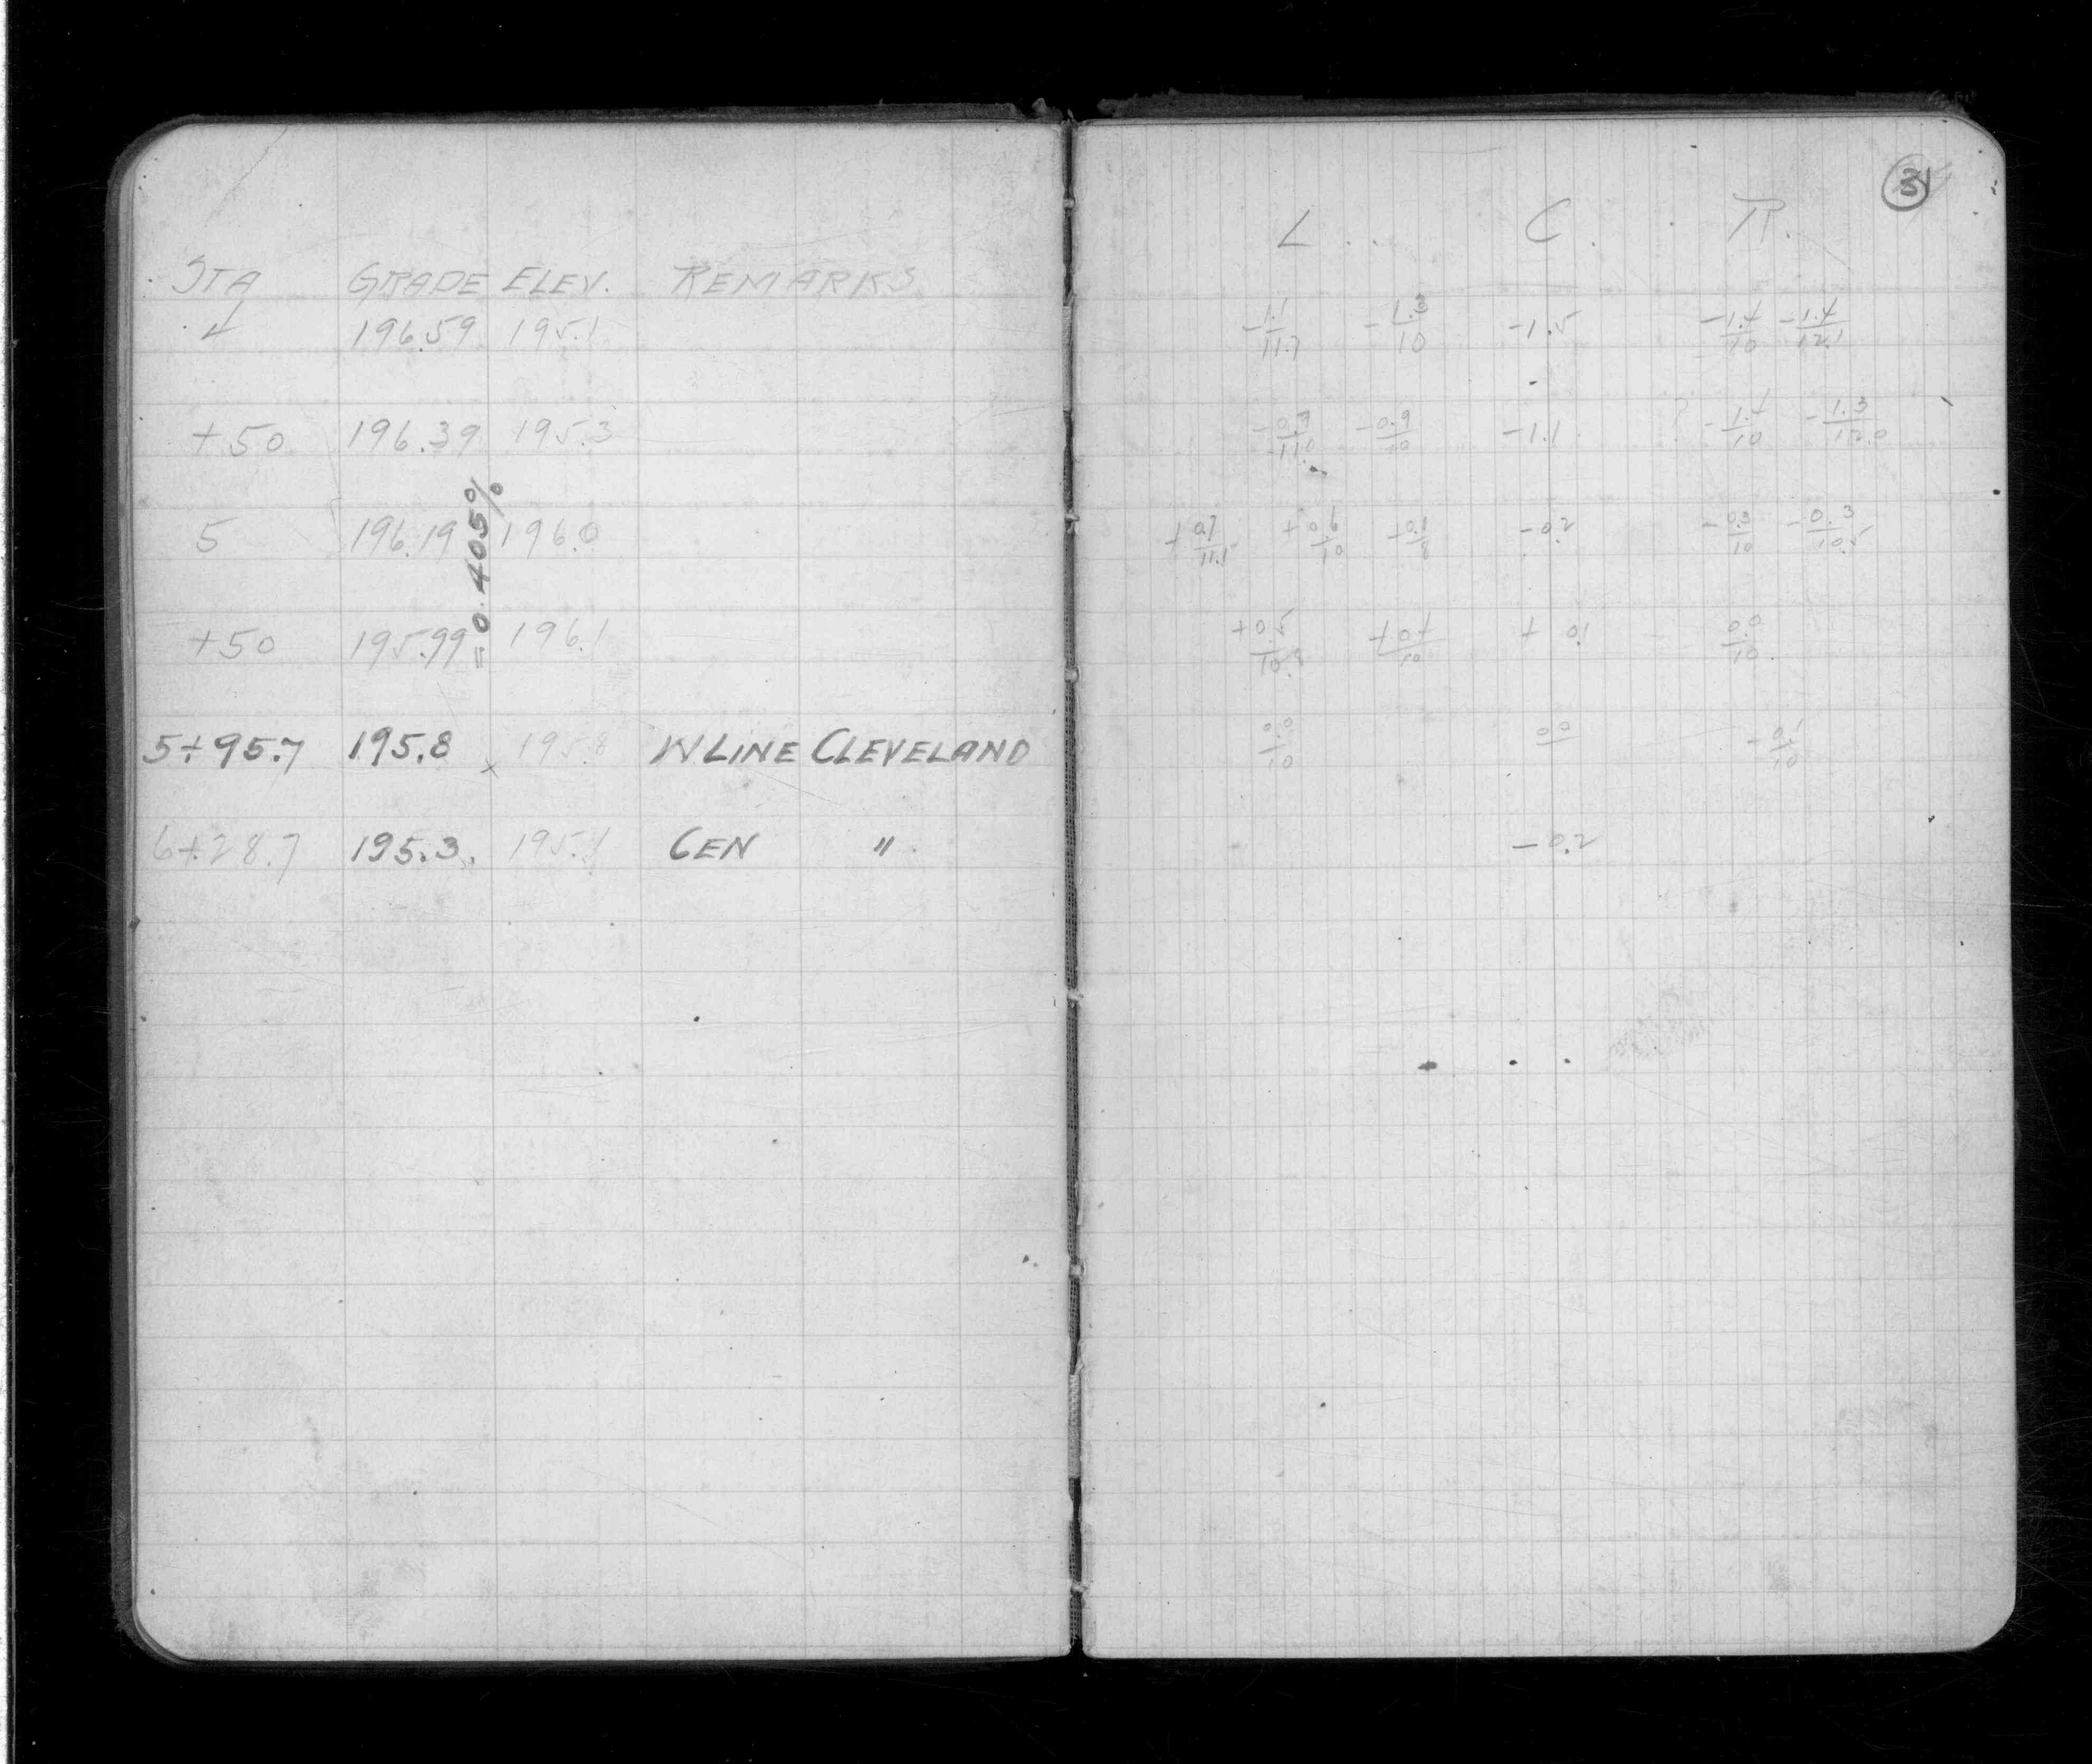 STA GRADE ELEV. REMARKS
4 196.59 195.1
+50 196.39 195.3
5 196.19 196.0
+50 195.99 196.1
= 0.405%
5+95.7 195.8 x 195.8 W LINE CLEVELAND
6+28.7 195.3. 195.1 CEN "
31
L. C. R.
-1.1/11.7 -1.3/10 -1.5 -1.4/10 -1.4/12.1
-0.7/11.0 -0.9/10 -1.1 -1.4/10 -1.3/12.0
+0.7/11.1 +0.6/10 +0.1/8 -0.2 -0.3/10 -0.3/10.5
+0.5/10. +0.4/10 + 0.1 0.0/10.
0.0/10 0.0 -0.1/10
-0.2